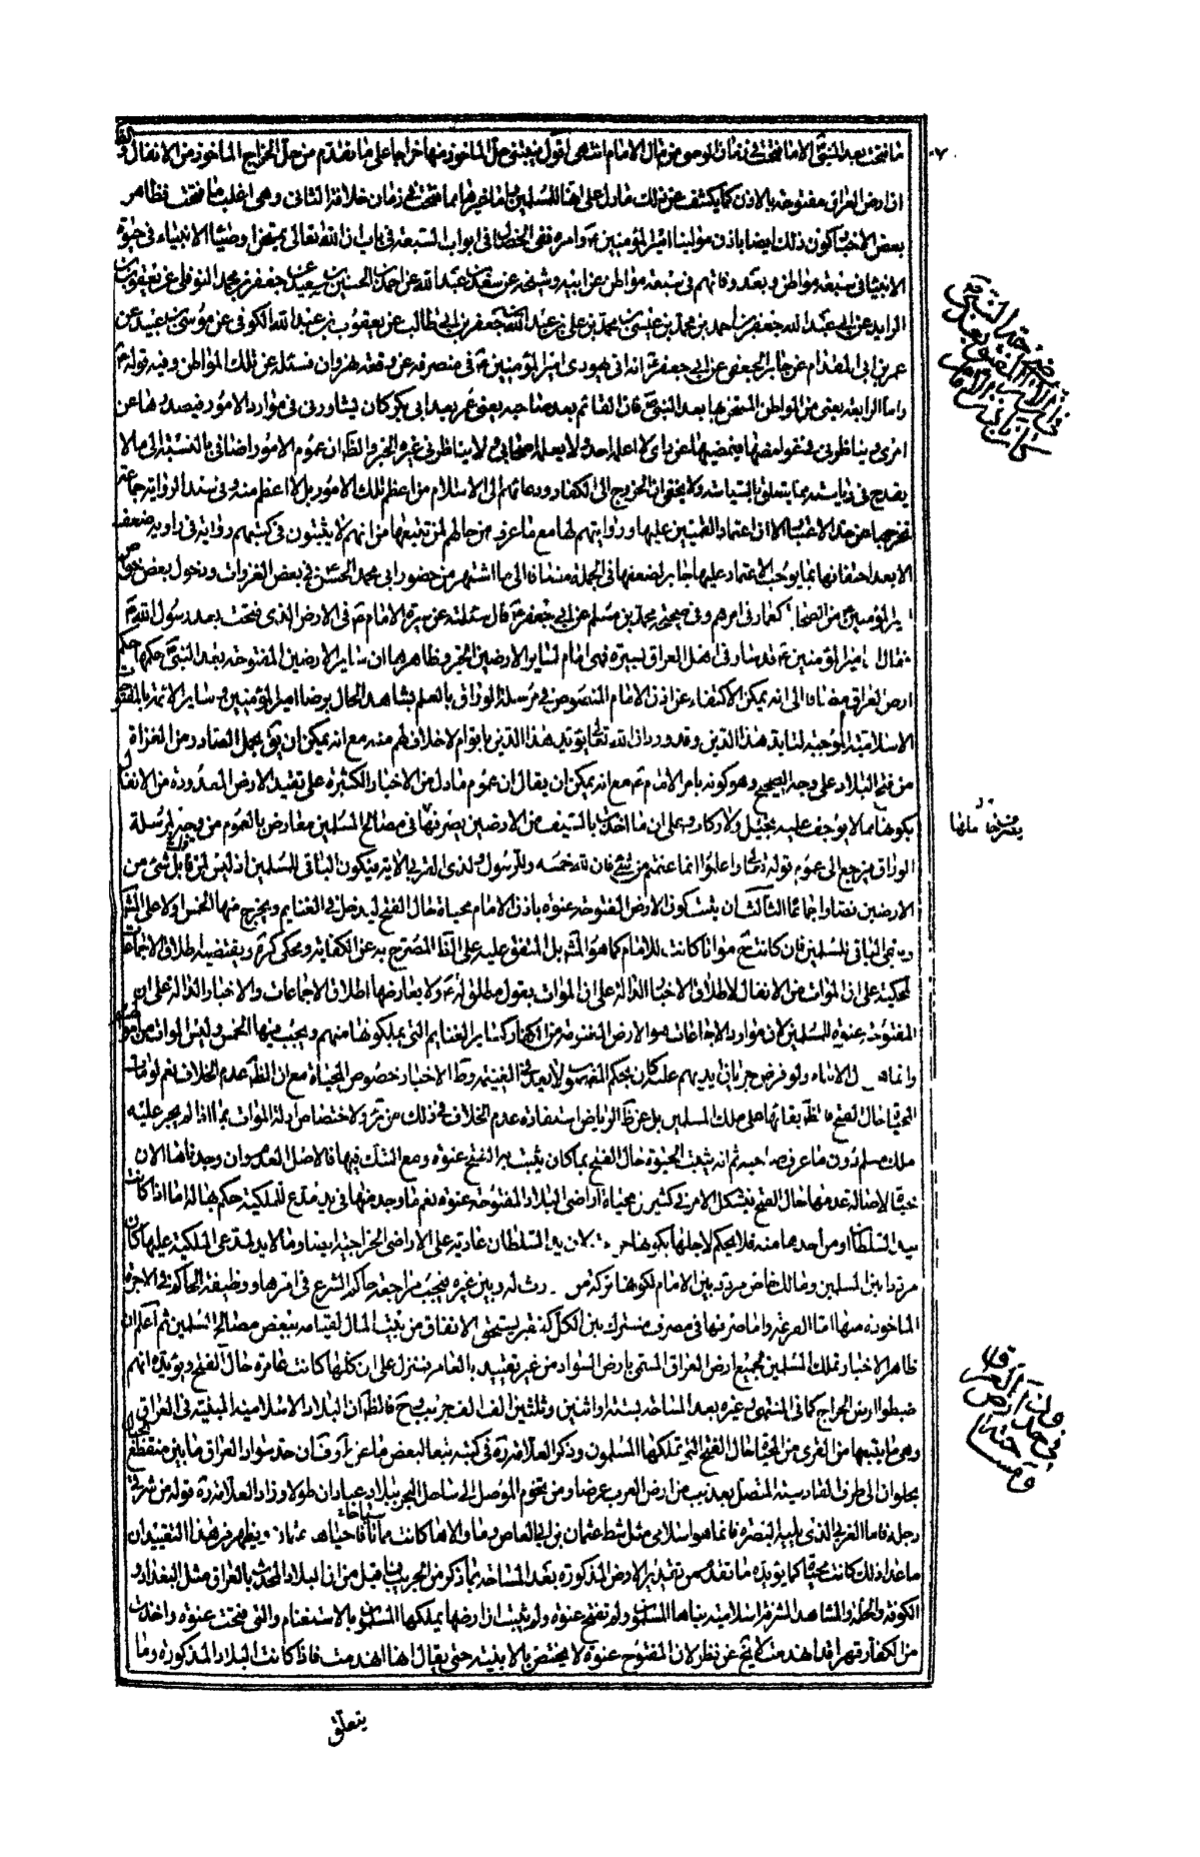 ما فتحت بعد النبى الا ما فتحت فى زمان الوصى من مال الامام انتهى اقول فيبتنى حل الماخوذ منها خراجا على ما تقدم من حل الخراج الماخوذ من الانفال والظ
ان ارض العراق مفتوحة بالاذن كما يكشف عن ذلك ما دل على انها للمسلمين واما غيرها مما فتحت فى زمان خلافة الثانى وهى اغلب ما فتحت فظاهر
بعض الاخبار كون ذلك ايضا باذن مولينا امير المؤمنين ع وامره ففى الخصال فى ابواب السبعة فى باب ان الله تعالى يمتحن اوصياء الانبياء فى حيوة
الانبياء فى سبعة مواطن وبعد وفاتهم فى سبعة مواطن عن ابيه وشيخه عن سعد بن عبد الله عن احمد بن الحسين بن سعيد عن جعفر بن محمد النوفلى عن يعقوب بن
الرايد عن ابى عبد الله جعفر بن احمد بن محمد بن عيسى بن محمد بن على بن عبد الله بن جعفر بن ابى طالب عن يعقوب بن عبد الله الكوفى عن موسى بن عبيد عن
عمر بن ابى المقدام عن جابر الجعفى عن ابى جعفر ع انه اتى يهودى امير المؤمنين ع فى منصرفه عن وقعة نهروان فسئله عن تلك المواطن وفيه قوله ع
واما الرابعة يعنى من المواطن الممتحن بها بعد النبى ص فان القائم بعد صاحبه يعنى عمر بعد ابى بكر كان يشاورنى فى موارد الامور فيصدرها عن
امرى ويناظرنى فى غوامضها فيمضيها عن رايى لا اعلمه احد ولا يعلمه اصحابى ولا يناظرنى غيره الخبر والظ ان عموم الامور اضافى بالنسبة الى ما لا
يقدح فى رياسته مما يتعلق بالسياسة ولا يخفى ان الخروج الى الكفار ودعائهم الى الاسلام من اعظم تلك الامور بل لا اعظم منه وفى سند الرواية جماعة
تخرجها عن حد الاعتبار الا ان اعتماد القميين عليها وروايتهم لها مع ما عرف من حالهم لمن تتبعها من انهم لا يثبتون فى كتبهم رواية فى راويه ضعف
الا بعد احتفافها بما يوجب الاعتماد عليها جابر لضعفها فى الجملة مضافا الى ما اشتهر من حضور ابى محمد الحسن فى بعض الغزوات ودخول بعض خواص
امير المؤمنين من الصحابة كعمار فى امرهم وفى صحيحة محمد بن مسلم عن ابى جعفر ع قال سئلته عن سيرة الامام فى الارض التى فتحت بعد رسول الله ص
فقال ان امير المؤمنين ع قد سار فى اهل العراق بسيرة فهى امام لساير الارضين الخبر وظاهرها ان ساير الارضين المفتوحة بعد النبى حكمها حكم
ارض العراق مضافا الى انه يمكن الاكتفاء عن اذن الامام المنصوص فى مرسلة الوراق بالعلم بشاهد الحال برضا امير المؤمنين وساير الائمة بالفتوحات
الاسلامية الموجبة لتايد هذا الدين وقد ورد ان الله تعالى يؤيد هذا الدين باقوام لا خلاق لهم منه مع انه يمكن ان يق بحمل الصادر من الغزاة
من فتح البلاد على وجه الصحيح وهو كونه بامر الامام ع مع انه يمكن ان يقال ان عموم ما دل من الاخبار الكثيرة على تقييد الارض المعدودة من الانفال
بكونها مما لا يوجف عليه بخيل ولا ركاب وعلى ان ما اخذت بالسيف من الارضين يصرفها فى مصالح المسلمين معارض بالعموم من وجه لمرسلة
الوراق فيرجع الى عموم قوله تعالى واعلموا انما غنمتم من شئ فان لله خمسه وللرسول ولذى القربى الاية فيكون الباقى للمسلمين اذ ليس لمن قاتل شئ من
الارضين نصا واجماعا الثالث ان يثبت كون الارض المفتوحة عنوة باذن الامام محياة حال الفتح ليدخل فى الغنايم ويخرج منها الخمس اولا على المشهور
ويبقى الباقى للمسلمين فان كانت ح مواتا كانت للامام كما هو المشهور بل المتفق عليه على الظ المصرح به عن الكفاية ومحكى كرة ويقتضيه اطلاق الاجماعات
المحكية على ان الموات من الانفال لاطلاق الاخبار الدالة على ان الموات بقول مطلق له ع ولا يعارضها اطلاق الاجماعات والاخبار الدالة على ان
المفتوحة عنوة للمسلمين لان موارد الاجماعات هو الارض المغنومة من الكفار كساير الغنايم التى يملكونها منهم ويجب فيها الخمس وليس الموات من اموالهم
وانما هى مال الامام ولو فرض جريان يديهم عليه كان بحكم المغصوب لا يعد فى الغنيمة وظ الاخبار خصوص المحياة مع ان الظ عدم الخلاف نعم لو مات
المحياة حال الفتح فالظ بقائها على ملك المسلمين بل عن ظ الرياض استفادة عدم الخلاف فى ذلك من ئر ولاختصاص ادلة الموات بما اذا لم يجر عليه
ملك مسلم دون ما عرف صاحبه ثم انه يثبت الحيوة حال الفتح بما كان يثبت به الفتح عنوة ومع الشك فيها فالاصل العدم وان وجدناها الان
محياة لاصالة عدمها حال الفتح فيشكل الامر فى كثير من محياة اراضى البلاد المفتوحة عنوة نعم ما وجد منها فى يد مدع للملكية حكم بها له اما اذا كانت
بيد السلطان او من اخذها منه فلا يحكم لاجلها بكونها خراجية لان يد السلطان عادية على الاراضى الخراجية ايضا وما لا يد لمدعى الملكية عليها كان
مرددا بين المسلمين ومالك خاص مردد بين الامام لكونها تركة من لا وارث له وبين غيره فيجب مراجعة حاكم الشرع فى امرها ووظيفة الحاكم فى الاجرة
الماخوذة منها اما القرعة واما صرفها فى مصرف مشترك بين الكل كفقير يستحق الانفاق من بيت المال لقيامه ببعض مصالح المسلمين ثم اعلم ان
ظاهر الاخبار تملك المسلمين لجميع ارض العراق المسمى بارض السواد من غير تقييد بالعامر فينزل على ان كلها كانت عامرة حال الفتح ويؤيده انهم
ضبطوا ارض الخراج كما فى المنتهى وغيره بعد المساحة بستة او اثنين وثلثين الف الف جريب وح فالظ ان البلاد الاسلامية المبنية فى العراق
وهى ما يتبعها من القرى من المحياة حال الفتح التى تملكها المسلمون وذكر العلامة ره فى كتبه تبعا لبعض ما عن ف ان حد سواد العراق ما بين منقطع الجبال
بحلوان الى طرف القادسية المتصل بعذيب من ارض العرب عرضا ومن تخوم الموصل الى ساحل البحر ببلاد عبادان طولا وزاد العلامة ره قوله من شرقى
دجلة فاما الغربى الذى يليه البصرة فانما هو اسلامى مثل شط عثمان بن ابى العاص وما والاها كانت سباخا مماتا فاحياها عثمان ويظهر من هذا التقييد ان
ما عدا ذلك كانت محياة كما يؤيده ما تقدم من تقدير الارض المذكورة بعد المساحة بما ذكر من الجريب فما قيل من ان البلاد المحدثة بالعراق مثل البغداد و
الكوفة والحلة والمشاهد المشرفة اسلامية بناها المسلمون ولم تفتح عنوة ولم يثبت ان ارضها يملكها المسلمون بالاستغنام والتى فتحت عنوة واخذت
من الكفار قهرا قد انهدمت لا يخ عن نظر لان المفتوح عنوة لا يختص بالابنية حتى يقال انها انهدمت فاذا كانت البلاد المذكورة وما
يتعلق